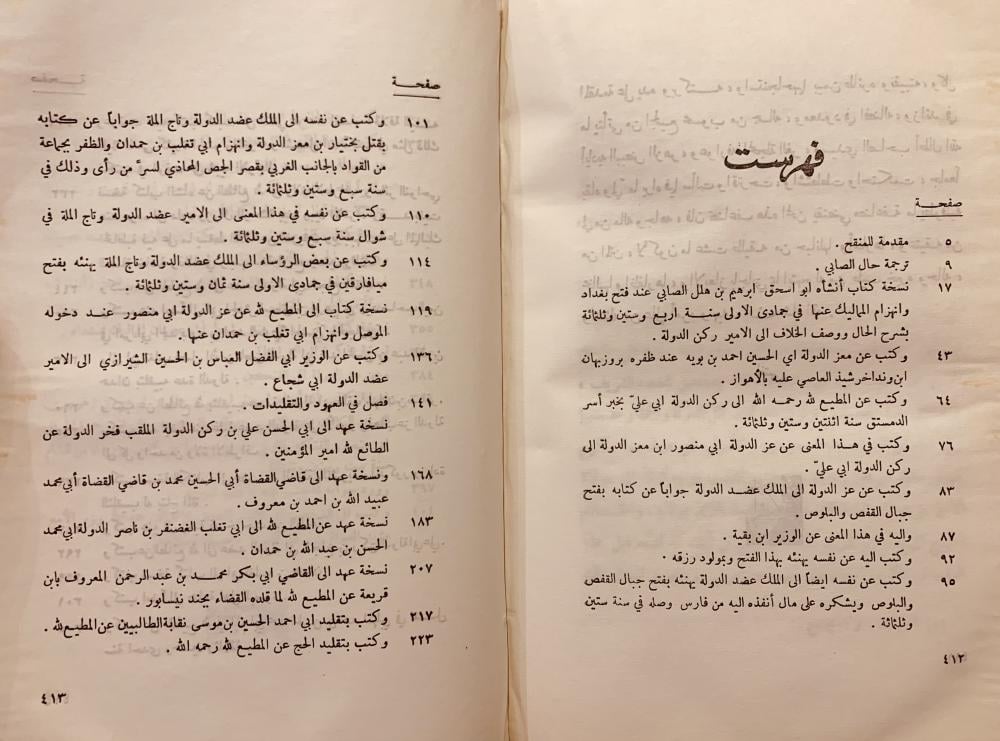 فهرست
صفحة
٥ مقدمة للمنقح .
٩ ترجمة حال الصابي .
١٧ نسخة كتاب أنشأه ابو اسحق ابرهيم بن هلل الصابي عند فتح بغداد
وانهزام الماليك عنها في جمادى الاولى سنة اربع وستين وثلثائة
بشرح الحال ووصف الخلاف الى الامير ركن الدولة .
٤٣ وكتب عن معز الدولة اي الحسين احمد بن بويه عند ظفره بروزبهان
ابن ونداخرشيذ العاصي عليه بالأهواز .
٦٤ وكتب عن المطيع لله رحمه الله الى ركن الدولة ابي عليّ بخبر أسر
الدمستق سنة اثنتين وستين وثلثائة .
٧٦ وكتب في هذا المعنى عن عز الدولة ابي منصور ابن معز الدولة الى
ركن الدولة ابي عليّ .
٨٣ وكتب عن عز الدولة الى الملك عضد الدولة جواباً عن كتابه بفتح
جبال القفص والبلوص .
٨٧ واليه في هذا المعنى عن الوزير ابن بقية .
٩٢ وكتب اليه عن نفسه يهنئه بهذا الفتح وبمولود رزقه .
٩٥ وكتب عن نفسه ايضاً الى الملك عضد الدولة يهنئه بفتح جبال القفص
والبلوص ويشكره على مال أنفذه اليه من فارس وصله في سنة ستين
وثلثائة .
٤١٢
صفحة
١٠١ وكتب عن نفسه الى الملك عضد الدولة وتاج الملة جواباً عن كتابه
بقتل بختيار بن معز الدولة وانهزام ابي تغلب بن حمدان والظفر بجماعة
من القواد بالجانب الغربي بقصر الجص المحاذي لسرّ من رأى وذلك في
سنة سبع وستين وثلثائة .
١١٠ وكتب عن نفسه في هذا المعنى الى الامير عضد الدولة وتاج الملة في
شوال سنة سبع وستين وثلثائة .
١١٤ وكتب عن بعض الرؤساء الى الملك عضد الدولة وتاج الملة يهنئه بفتح
ميافارقين في جمادى الاولى سنة ثمان وستين وثلثائة .
١١٩ نسخة كتاب الى المطيع لله عن عز الدولة ابي منصور عند دخوله
الموصل وانهزام ابي تغلب بن حمدان عنها .
١٣٦ وكتب عن الوزير ابي الفضل العباس بن الحسين الشيرازي الى الامير
عضد الدولة ابي شجاع .
١٤١ فصل في العهود والتقليدات .
نسخة عهد الى ابي الحسن علي بن ركن الدولة الملقب فخر الدولة عن
الطائع لله امير المؤمنين .
١٦٨ ونسخة عهد الى قاضي القضاة أبي الحسين محمد بن قاضي القضاة أبي محمد
عبيد الله بن احمد بن معروف .
١٨٣ نسخة عهد عن المطيع لله الى ابي تغلب الغضنفر بن ناصر الدولة ابي محمد
الحسن بن عبد الله بن حمدان .
٢٠٧ نسخة عهد الى القاضي ابي بكر محمد بن عبد الرحمن المعروف بابن
قريعة عن المطيع لله لما قلده القضاء بجند نيسابور .
٢١٧ وكتب بتقليد ابي احمد الحسين بن موسى نقابة الطالبيين عن المطيع لله .
٢٢٣ وكتب بتقليد الحج عن المطيع لله رحمه الله .
٤١٣